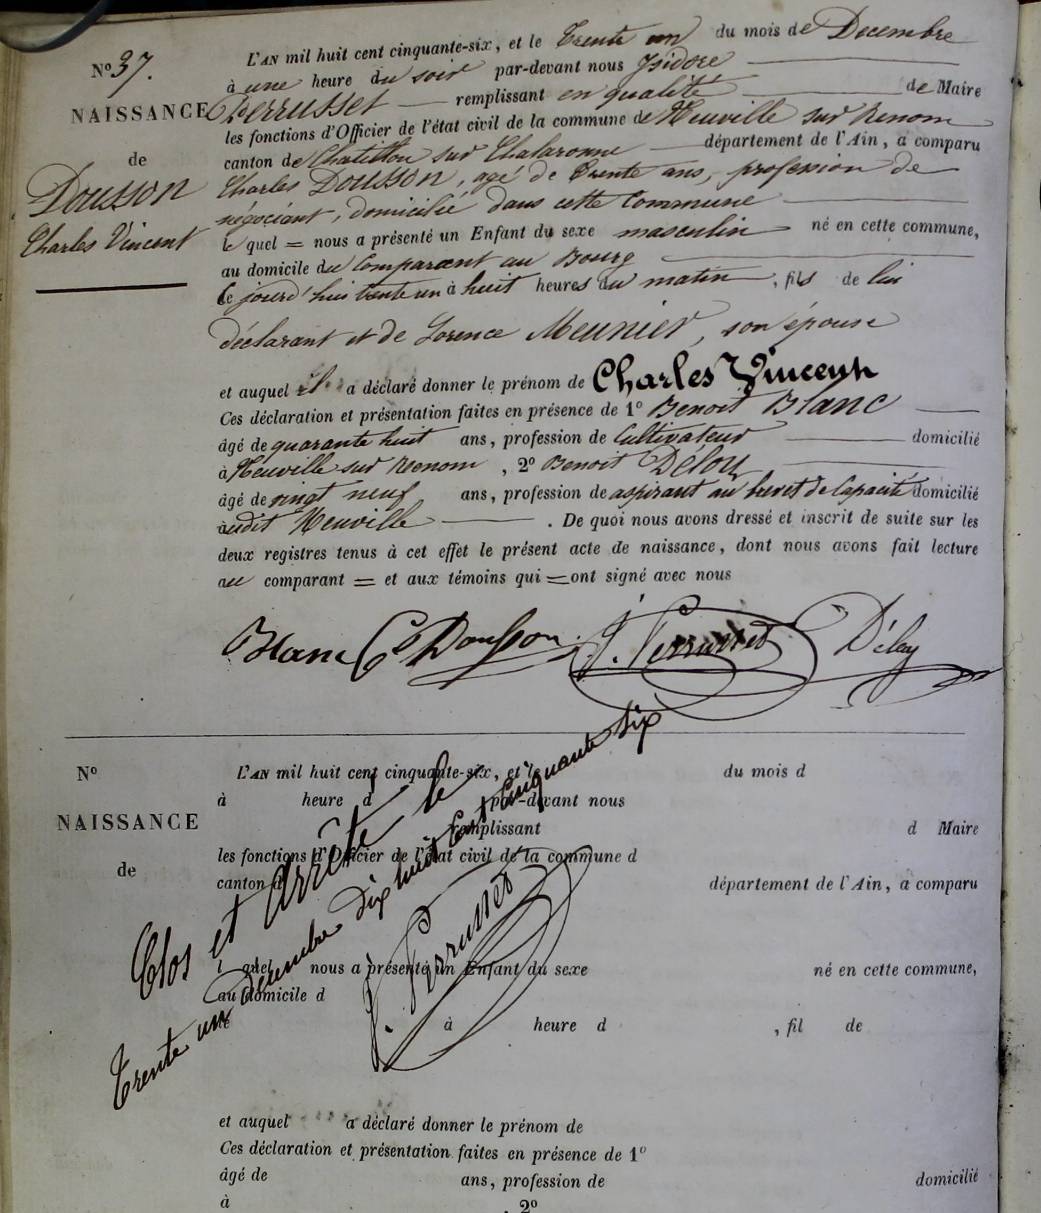 N° 37.
NAISSANCE
de
Dousson
Charles Vincent
L'AN mil huit cent cinquante-six, et le Trente un du mois de Decembre
à une heure du soir par-devant nous Isidore
Perrusset remplissant en qualité de Maire
les fonctions d'Officier de l'état civil de la commune de Neuville sur Renom
canton de Chatillon sur Chalaronne département de l'Ain, a comparu
Charles Dousson, agé de Trente ans, profession de
négociant, domicilié dans cette Commune
le quel = nous a présenté un Enfant du sexe masculin né en cette commune,
au domicile du Comparant au Bourg
le jourd'hui trente un à huit heures du matin, fils de lui
déclarant et de Lorence Meunier, son épouse
et auquel il a déclaré donner le prénom de Charles Vincent
Ces déclaration et présentation faites en présence de 1° Benoit Blanc
âgé de quarante huit ans, profession de Cultivateur domicilié
à Neuville sur Renom, 2° Benoit Délay
âgé de vingt neuf ans, profession de aspirant au brevet de Capacité domicilié
audit Neuville. De quoi nous avons dressé et inscrit de suite sur les
deux registres tenus à cet effet le présent acte de naissance, dont nous avons fait lecture
au comparant = et aux témoins qui = ont signé avec nous
Blanc C Dousson J. Perrusset Délay
N°
NAISSANCE
de
L'AN mil huit cent cinquante-six, et le du mois d
à heure d par-devant nous
remplissant d Maire
les fonctions d'Officier de l'état civil de la commune d
canton d département de l'Ain, a comparu
l quel nous a présenté un Enfant du sexe né en cette commune,
au domicile d
le à heure d , fil de
Clos et Arrêté le
Trente un Décembre Dix huit Cent Cinquante Six
J. Perrusset
et auquel a déclaré donner le prénom de
Ces déclaration et présentation faites en présence de 1°
âgé de ans, profession de domicilié
à , 2°